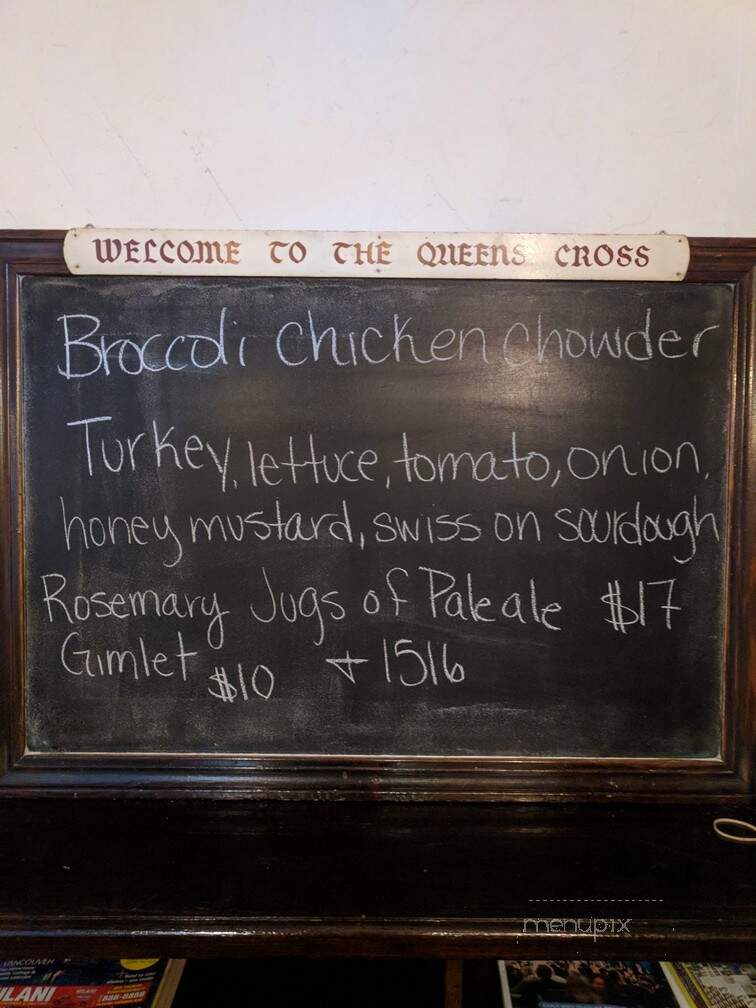 WELCOME TO THE QUEENS CROSS
Broccoli chicken chowder
Turkey, lettuce, tomato, onion,
honey mustard, swiss on sourdough
Rosemary Jugs of Pale ale $17
Gimlet $10 + 1516
menupix
VANCOUVER
MILANI
888-8888